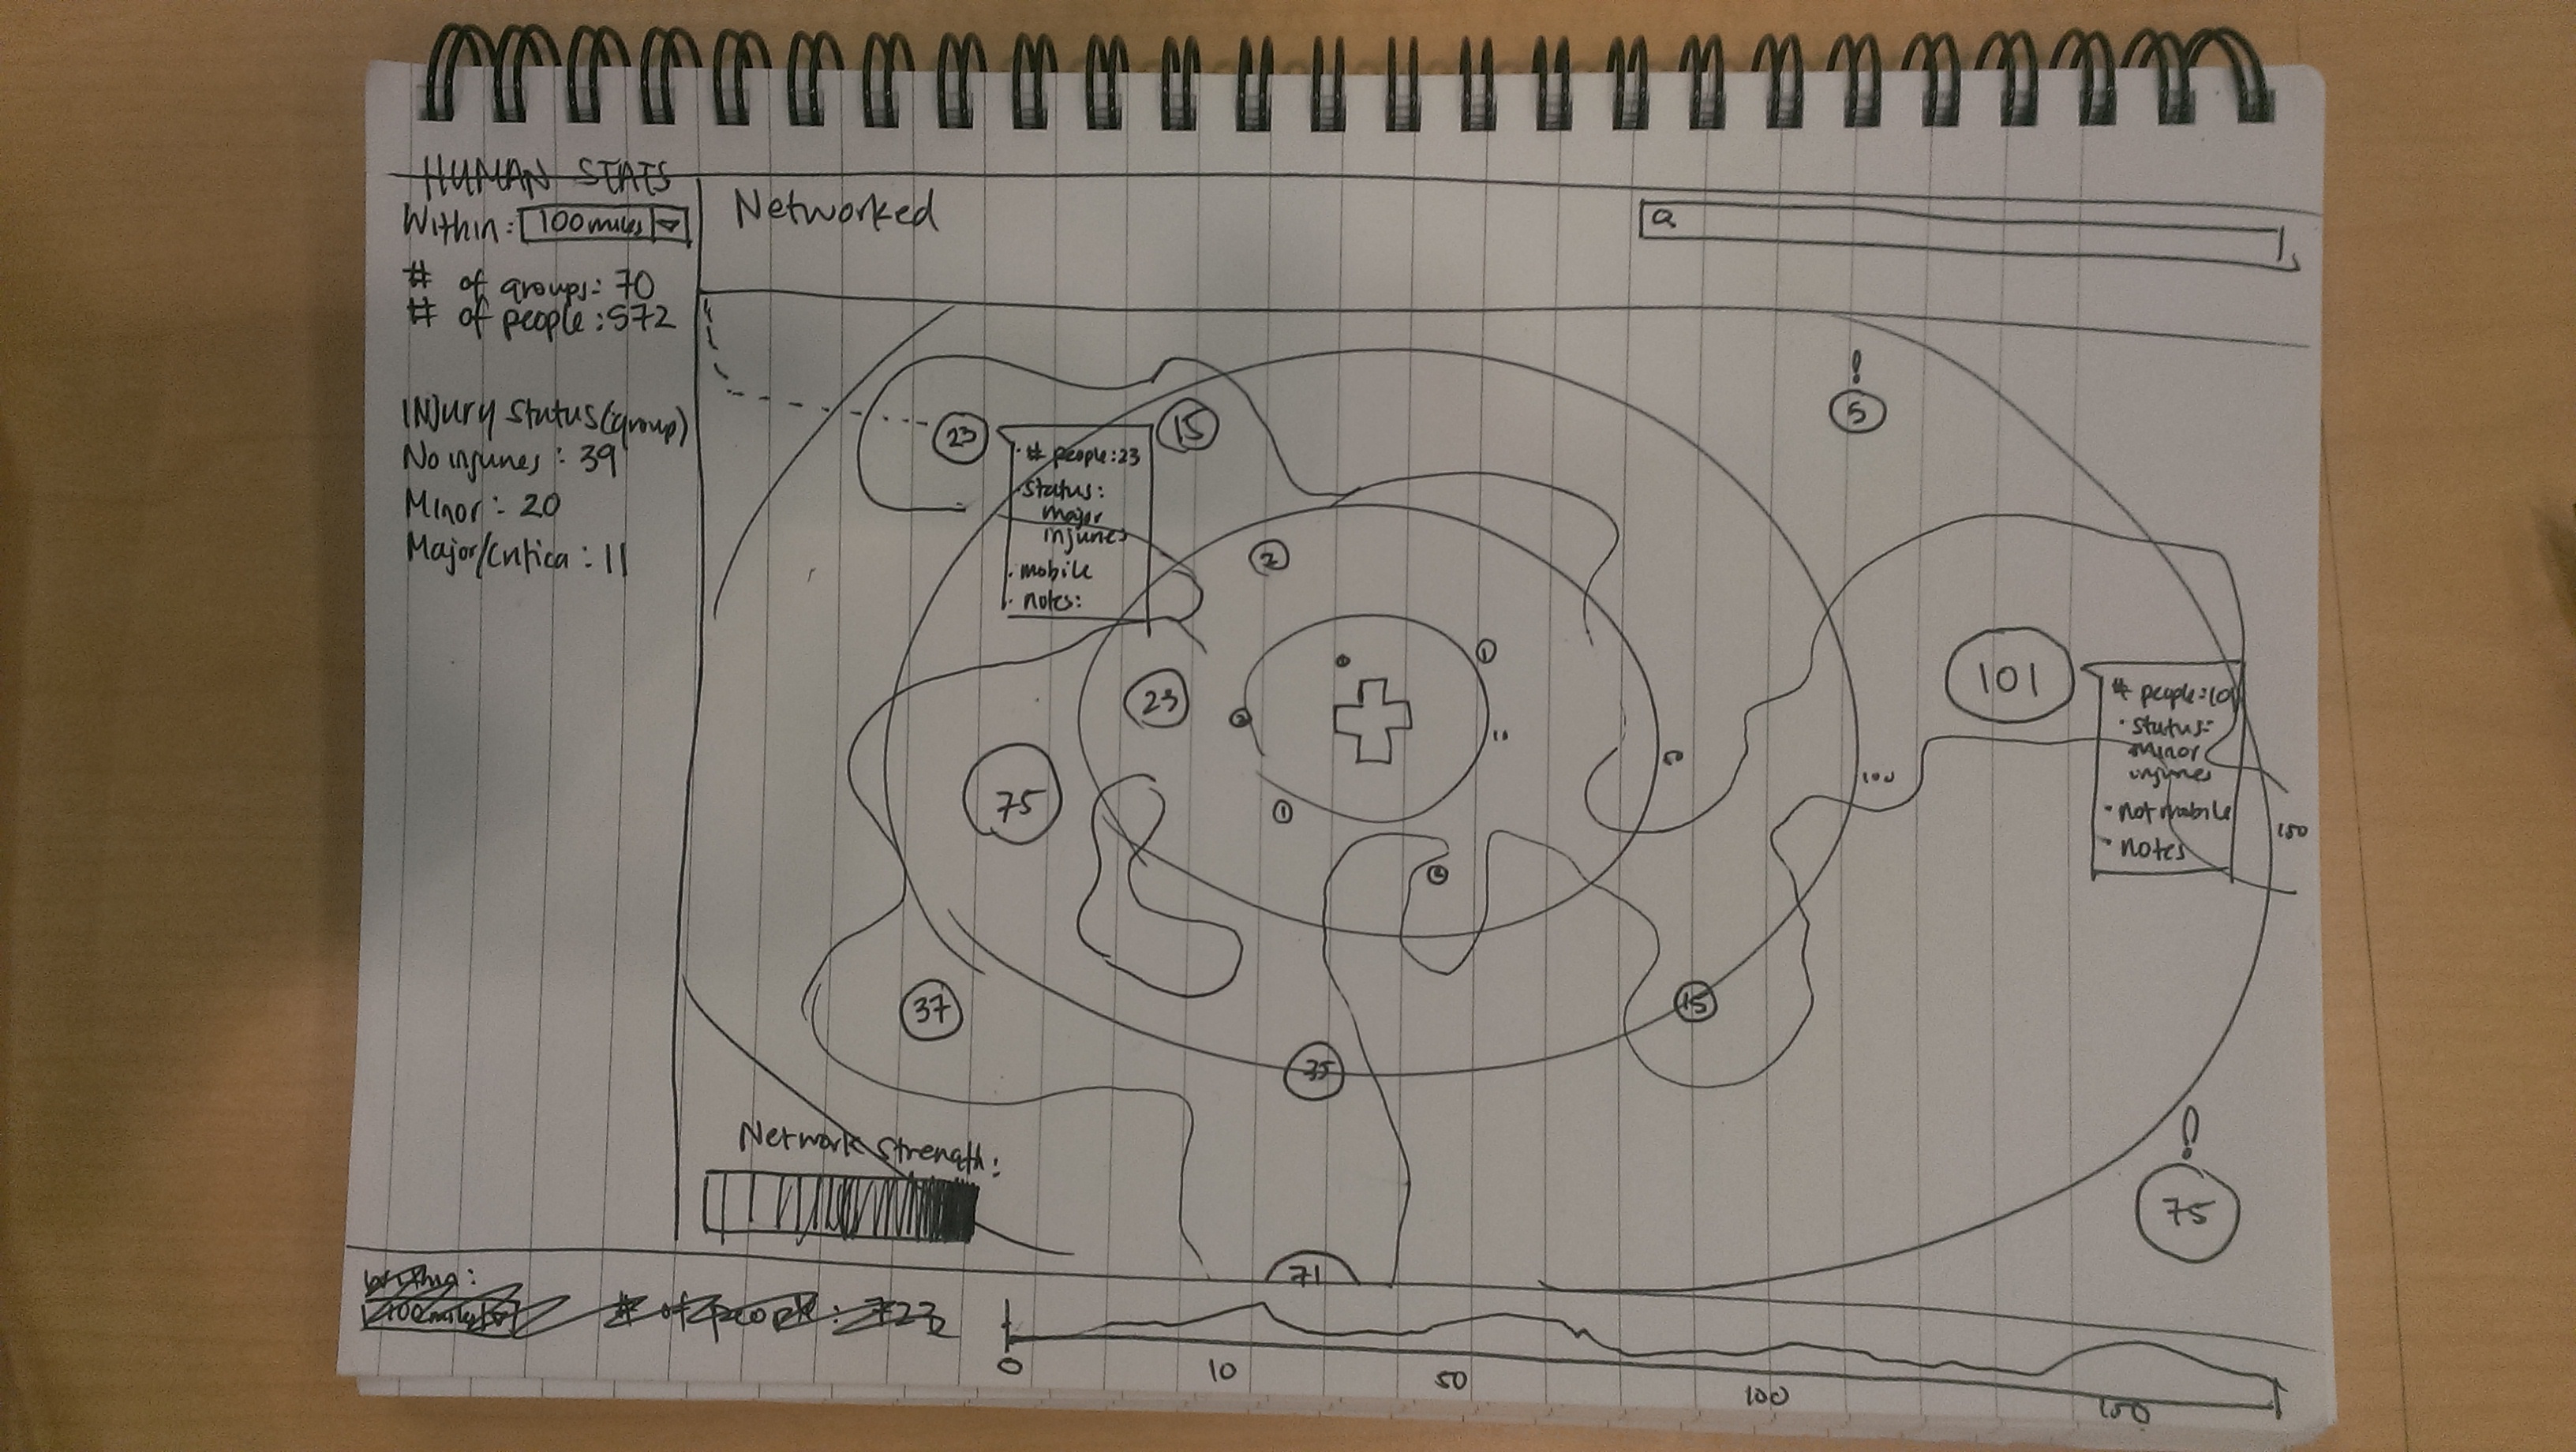 HUMAN STATS
Within: 100 miles
# of groups: 70
# of people: 572
INjury Status (group)
No injuries: 39
Minor: 20
Major/Critica: 11
Networked
23
# people: 23
• Status:
major
injuries
• mobile
• notes:
15
!
5
2
1
23
10
50
100
150
101
# people: 101
• status:
minor
injuries
• not mobile
• notes
75
1
37
15
35
!
75
Network Strength:
71
Within:
100 miles
# of people: 723
0 10 50 100 150